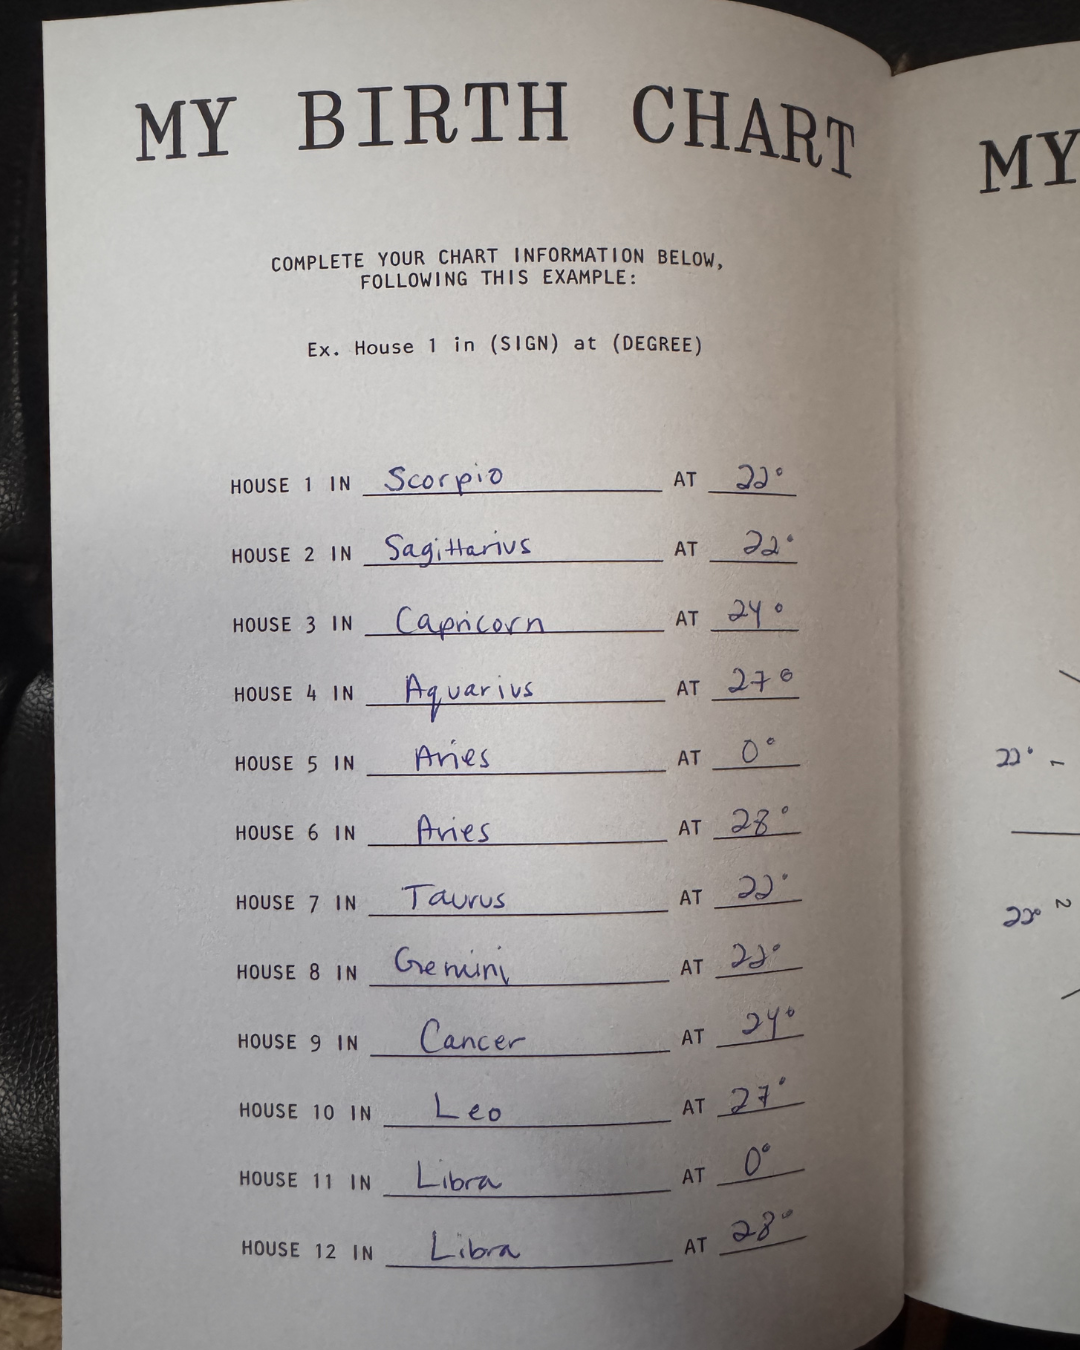 MY BIRTH CHART
COMPLETE YOUR CHART INFORMATION BELOW,
FOLLOWING THIS EXAMPLE:
Ex. House 1 in (SIGN) at (DEGREE)
HOUSE 1 IN Scorpio AT 22°
HOUSE 2 IN Sagittarius AT 22°
HOUSE 3 IN Capricorn AT 24°
HOUSE 4 IN Aquarius AT 27°
HOUSE 5 IN Aries AT 0°
HOUSE 6 IN Aries AT 28°
HOUSE 7 IN Taurus AT 22°
HOUSE 8 IN Gemini AT 22°
HOUSE 9 IN Cancer AT 24°
HOUSE 10 IN Leo AT 27°
HOUSE 11 IN Libra AT 0°
HOUSE 12 IN Libra AT 28°
MY
22° 1
22° 2